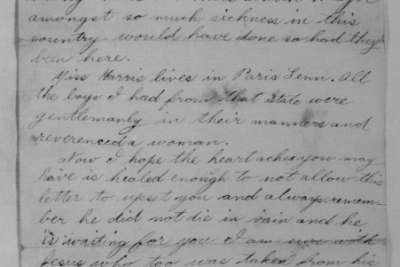 amongst so much sickness in this
country would have done so had they
been here.
Miss Harris lives in Paris Tenn. All
the boys I had from that State were
gentlemanly in their manners and
reverenced a woman.
Now I hope the heart aches you may
have is healed enough to not allow this
letter to upset you and always remem-
ber he did not die in vain and he
is waiting for you I am sure with
Jesus who too was taken from his